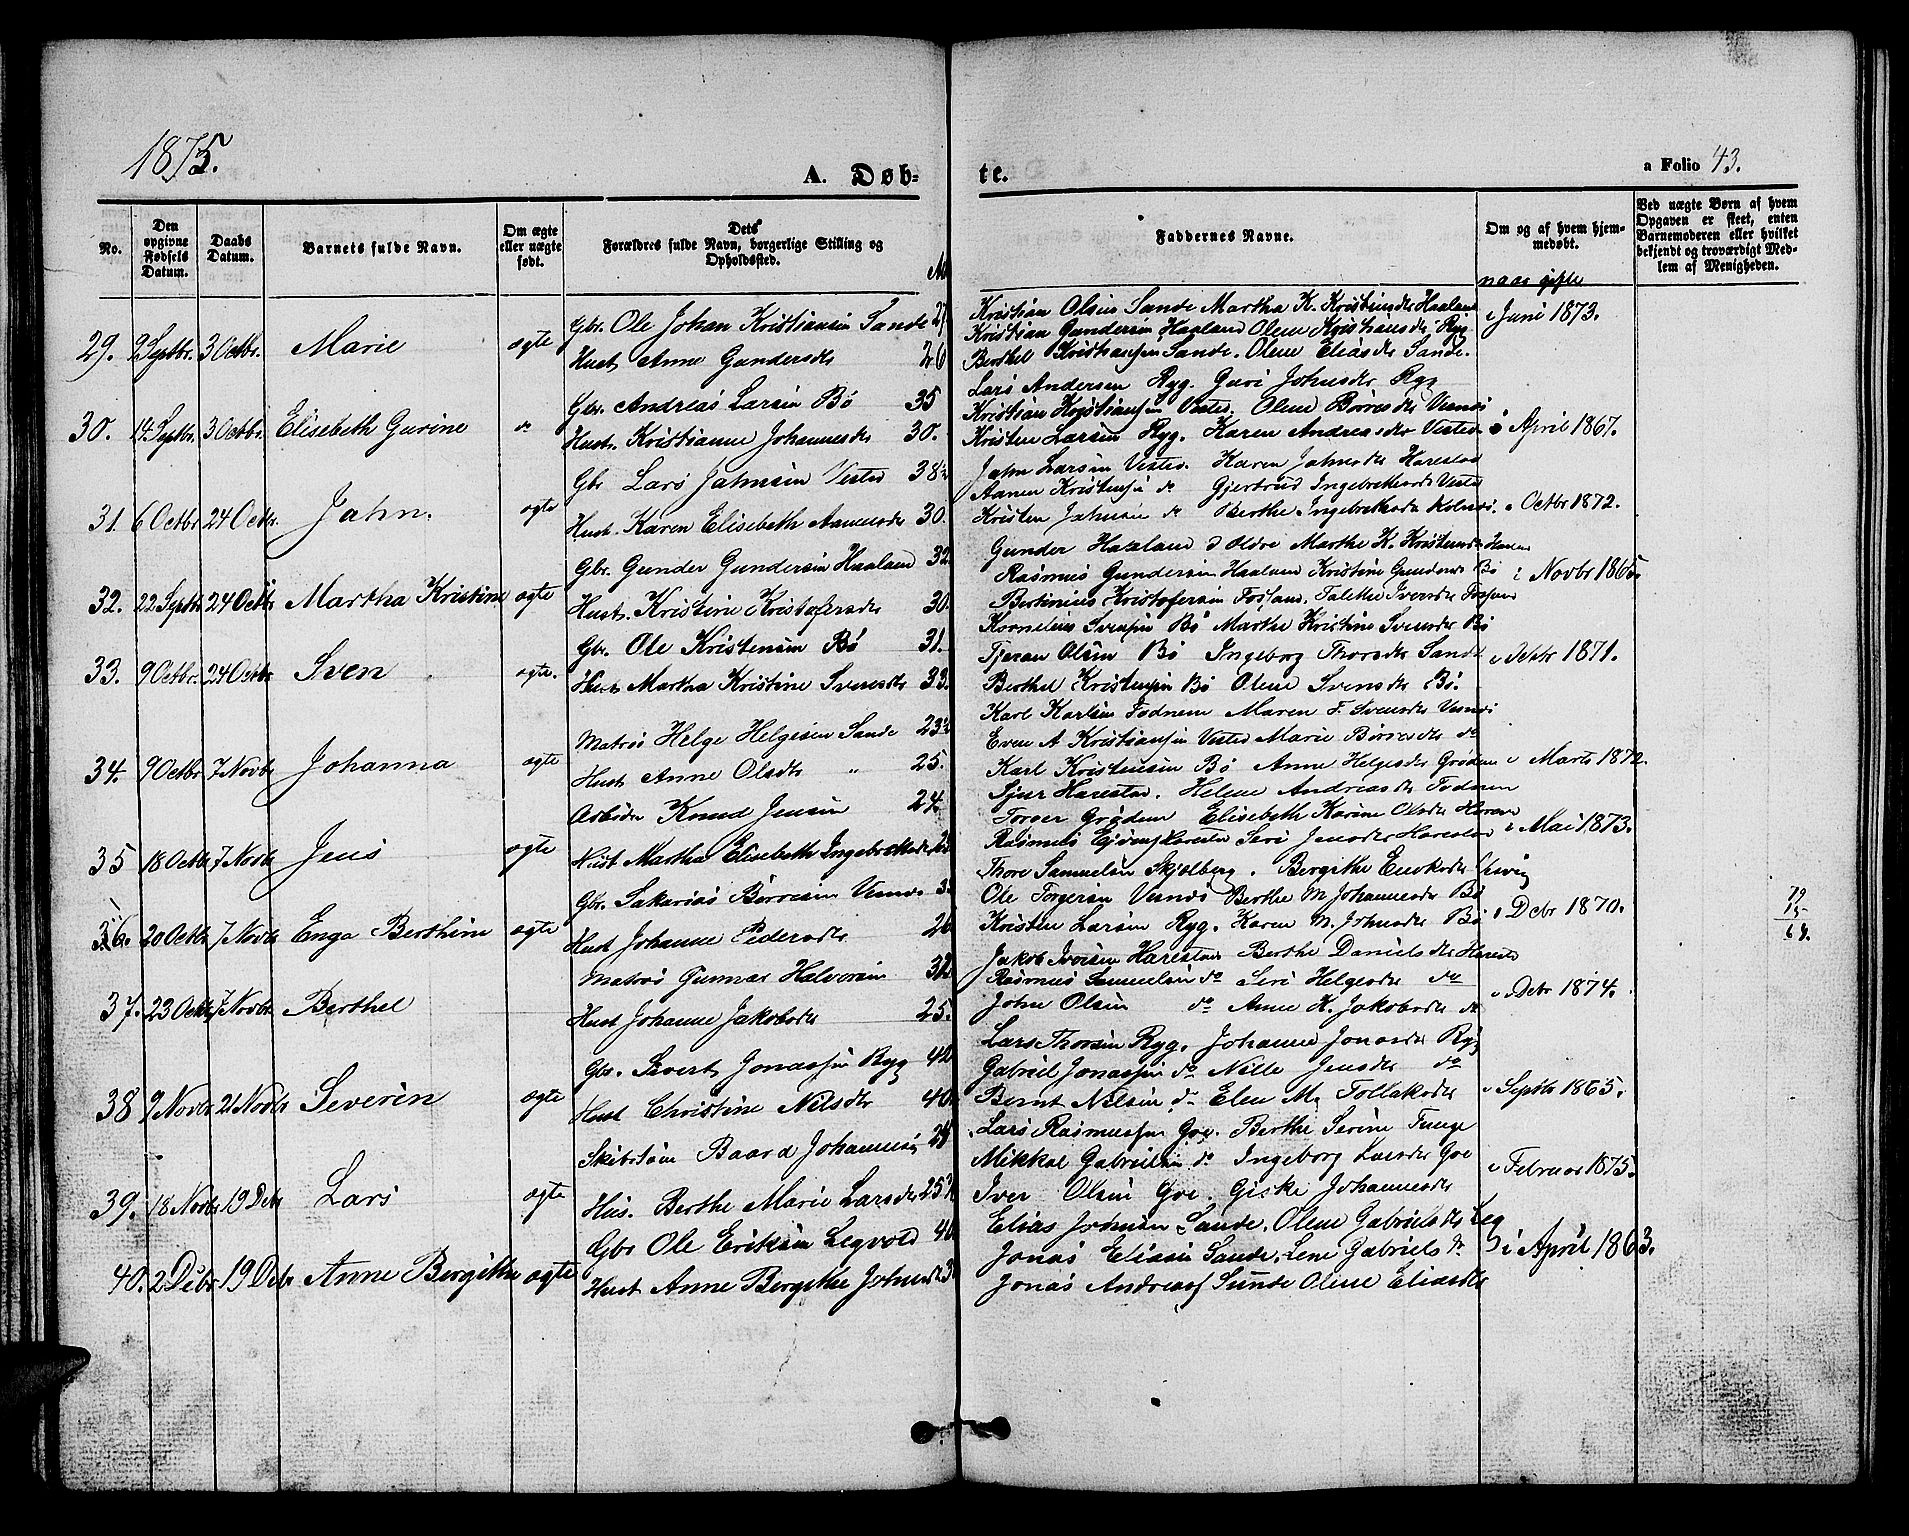 1875.
A. Døb-
te.
a Folio 43.
No.
Den opgivne Fødsels Datum.
Daabs Datum.
Barnets fulde Navn.
Om ægte eller uægte født.
Dets Forældres fulde Navn, borgerlige Stilling og Opholdssted.
Faddernes Navne.
Om og af hvem hjemmedøbt.
naar gifte
Ved uægte Børn af hvem Opgaven er skeet, enten Barnemoderen eller hvilket bekjendt og troværdigt Medlem af Menigheden.
29. 9 Septbr. 3 Octbr. Marie ægte
Gbr. Ole Johan Kristiansen Sande 27
Hust. Anne Gundersdtr 26
Kristian Olsen Sande Martha K. Kristensdtr Haaland
Kristian Gundersen Haaland Olene Kristiansdtr Ryg
Berthel Kristiansen Sande. Olene Eliasdtr Sande.
i Juni 1873.
30. 14 Septbr. 3 Octbr. Elisebeth Gurine do
Gbr. Andreas Larsen Bø 35
Hust. Kristianne Johannesdtr 30.
Lars Andersen Ryg. Guri Johnsdtr Ryg
Kristian Kristiansen Vested. Olene Børresdtr Vesnes
Kristen Larsen Ryg. Karen Andreasdtr Vested
i April 1867.
31. 6 Octbr. 24 Octbr. Jahn. ægte
Gbr. Lars Jahnsen Vested 38
Hust. Karen Elisebeth Aanensdtr 30.
Jahn Larsen Vested. Karen Jahnsdtr Harestad
Aanen Kristensen do Gjertrud Ingebretsdtr Vested
Kristen Jahnsen do Berthe Ingebretsdtr
i Octbr 1872.
32. 22 Septbr 24 Octbr Martha Kristine ægte
Gbr. Gunder Gundersen Haaland 32
Hust. Kristine Kristofersdtr 30.
Gunder Haaland Marthe K. Kristensdtr
Rasmus Gundersen Haaland Kristine Gundersdtr Bø
Bertinius Kristofersen Talette Iversdtr
i Novbr 1865.
33. 9 Octbr. 24 Octbr. Sven ægte.
Gbr. Ole Kristensen Bø 31.
Hust Martha Kristine Svensdtr 33.
Kornelius Svensen Bø Marthe Kristine Svensdtr Bø
Tjeran Olsen Bø Ingeborg Thorsdtr Sande
Berthel Kristensen Bø Olene Svensdtr Bø.
i Octbr 1871.
34. 9 Octbr 7 Novbr Johanna ægte
Matros Helge Helgesen Sande 23
Hust Anne Olsdtr " 25.
Karl Karlsen Todnem Maren T. Svensdtr Vesnes
Even A Kristiansen Vested Marie Børresdtr do
Karl Kristensen Bø Anne Helgesdtr Grødem
i Marts 1872.
35 18 Octbr 7 Novbr Jens ægte
Arbeider Knud Jensen 24.
Hust Martha Elisebeth Ingebretsdtr
Sjur Harestad. Helene Andreasdtr Todnem
Torger Grødem Elisebeth Karine Olsdtr
Rasmus Harestad Seri Jensdtr Harestad
i Mai 1873.
36. 20 Octbr 7 Novbr Enga Berthine ægte
Gbr. Sakarias Børresen Vesnes
Hust Johanne Pedersdtr 26
Thore Samuelsen Skjølberg. Bergithe
Ole Torgersen Vesnes Berthe M Johannesdtr Bø
Kristen Larsen Ryg. Karen M. Johnsdtr Bø
i Debr 1870.
37. 23 Octbr 7 Novbr Berthel
Matros Gunnar Halvorsen 32
Hust Johanne Jakobsdtr 25.
Jakob Iversen Harestad Berthe Danielsdtr Harestad
Rasmus Samuelsen do Seri Helgesdtr do
John Olsen do Anne K. Jakobsdtr do
i Debr 1874.
38 9 Novbr 21 Novbr Severin ægte
Gbr. Sivert Jonassen Ryg 42
Hust Christine Nilsdtr 40
Lars Thorsen Ryg. Johanne Jonasdtr Ryg
Gabriel Jonassen do Nille Jensdtr do
Bernt Nilsen do Elen M. Tollaksdtr
i Septbr 1865.
39. 18 Novbr 19 Debr Lars ægte
Skibstøm Baard Johannesen 28
Hus. Berthe Marie Larsdtr 25
Lars Rasmussen Goe. Berthe Serine Tunge
Mikkal Gabrielsen do Ingeborg Larsdtr Goe
Iver Olsen Goe. Giske Johannesdtr
i Februar 1875.
40. 2 Debr 19 Debr Anne Bergithe ægte
Gbr Ole Eriksen Legvold 40
Hust Anne Bergithe Johnsdtr
Elias Jonasen Sande. Olene Gabrielsdtr Leg
Jonas Eliasen Sande. Lene Gabriels do
Jonas Andreas Sunde Olene Eliasdtr
i April 1863.
79
15
64.